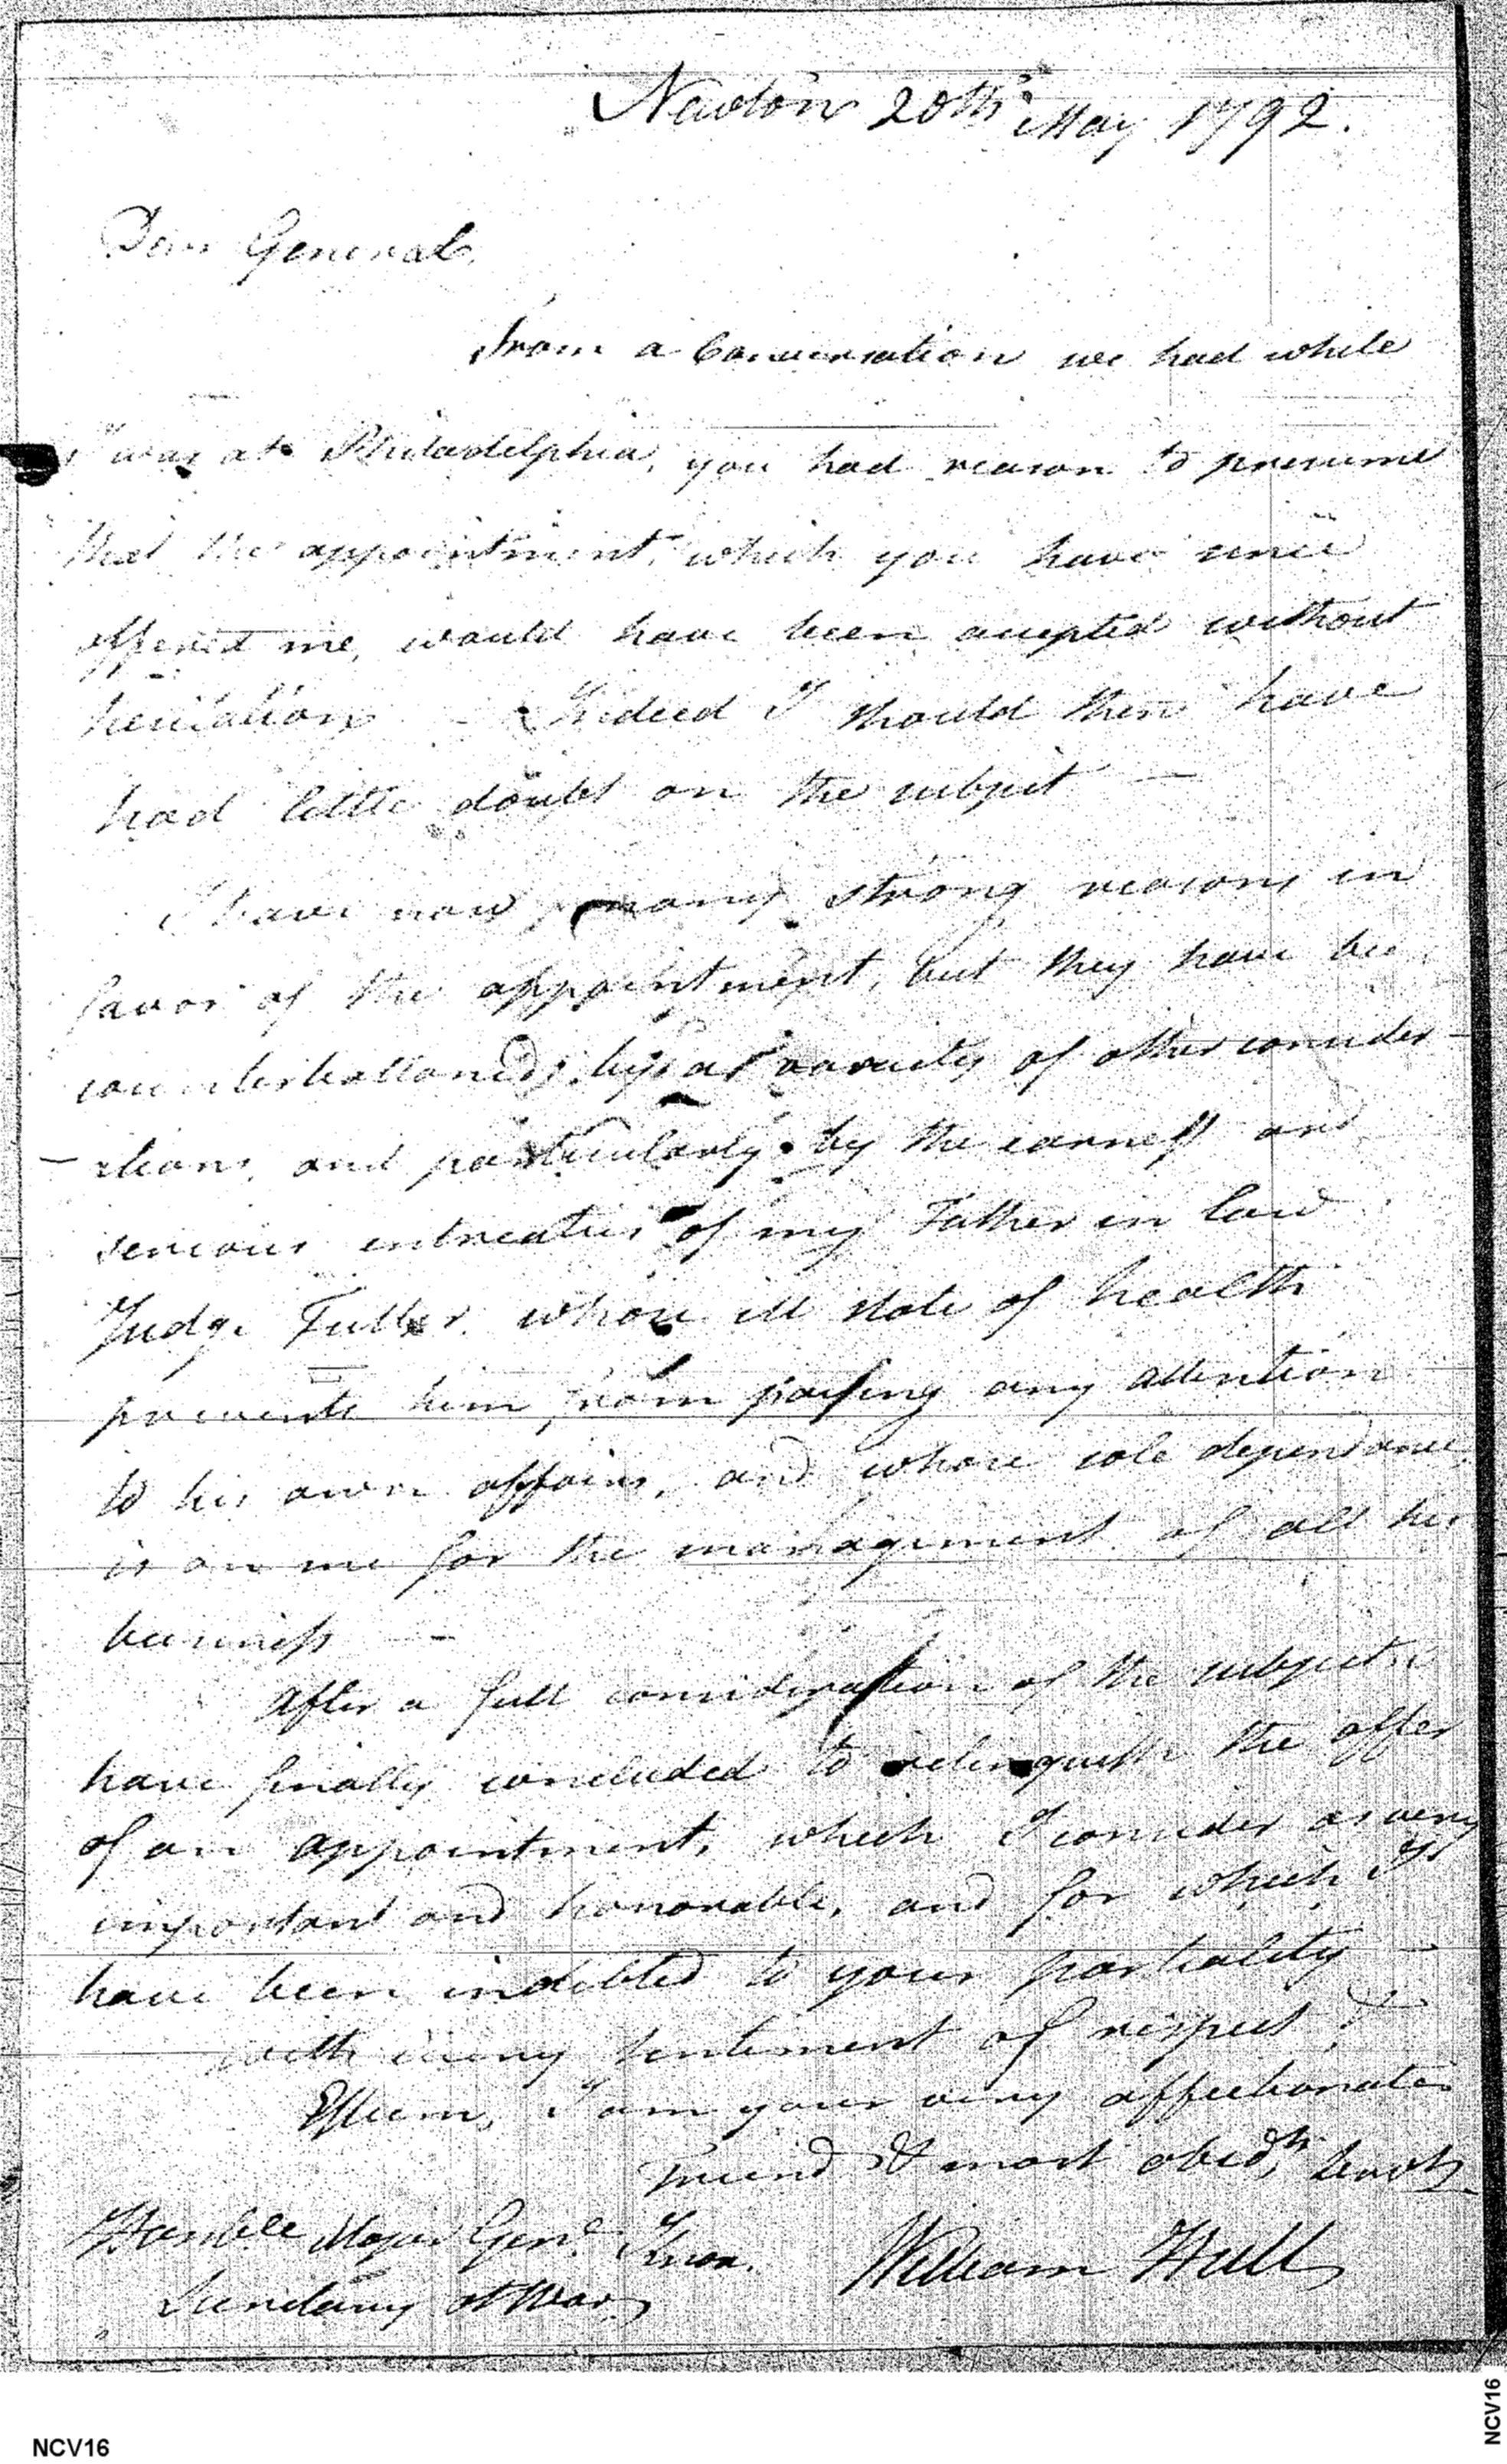 Newton 20th May 1792.
Dear General,
From a Conversation we had while
I was at Philadelphia, you had reason to presume
that the appointment, which you have since
offered me, would have been accepted without
hesitation — Indeed I should then have
had little doubt on the subject —
I have now many strong reasons in
favor of the appointment, but they have been
counterballanced, by a variety of other consider
– ations, and particularly by the earnest and
serious entreaties of my Father in Law
Judge Fuller, whose ill state of health
prevents him from paying any attention
to his own affairs, and whose sole dependance
is on me for the management of all his
business —
After a full consideration of the subject I
have finally concluded to relinquish the offer
of an appointment, which I consider as very
important and honorable, and for which I
have been indebted to your partiality —
with every sentiment of respect &
Esteem, I am your very affectionate
friend & most obedt. servt.
William Hull
Honble Major Genl. Knox.
Secretary at War
NCV16
NCV16